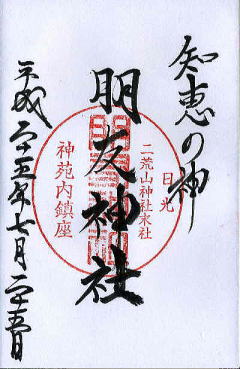 知恵の神
日光
二荒山神社末社
朋友神社
神苑内鎮座
平成二十五年七月二十五日